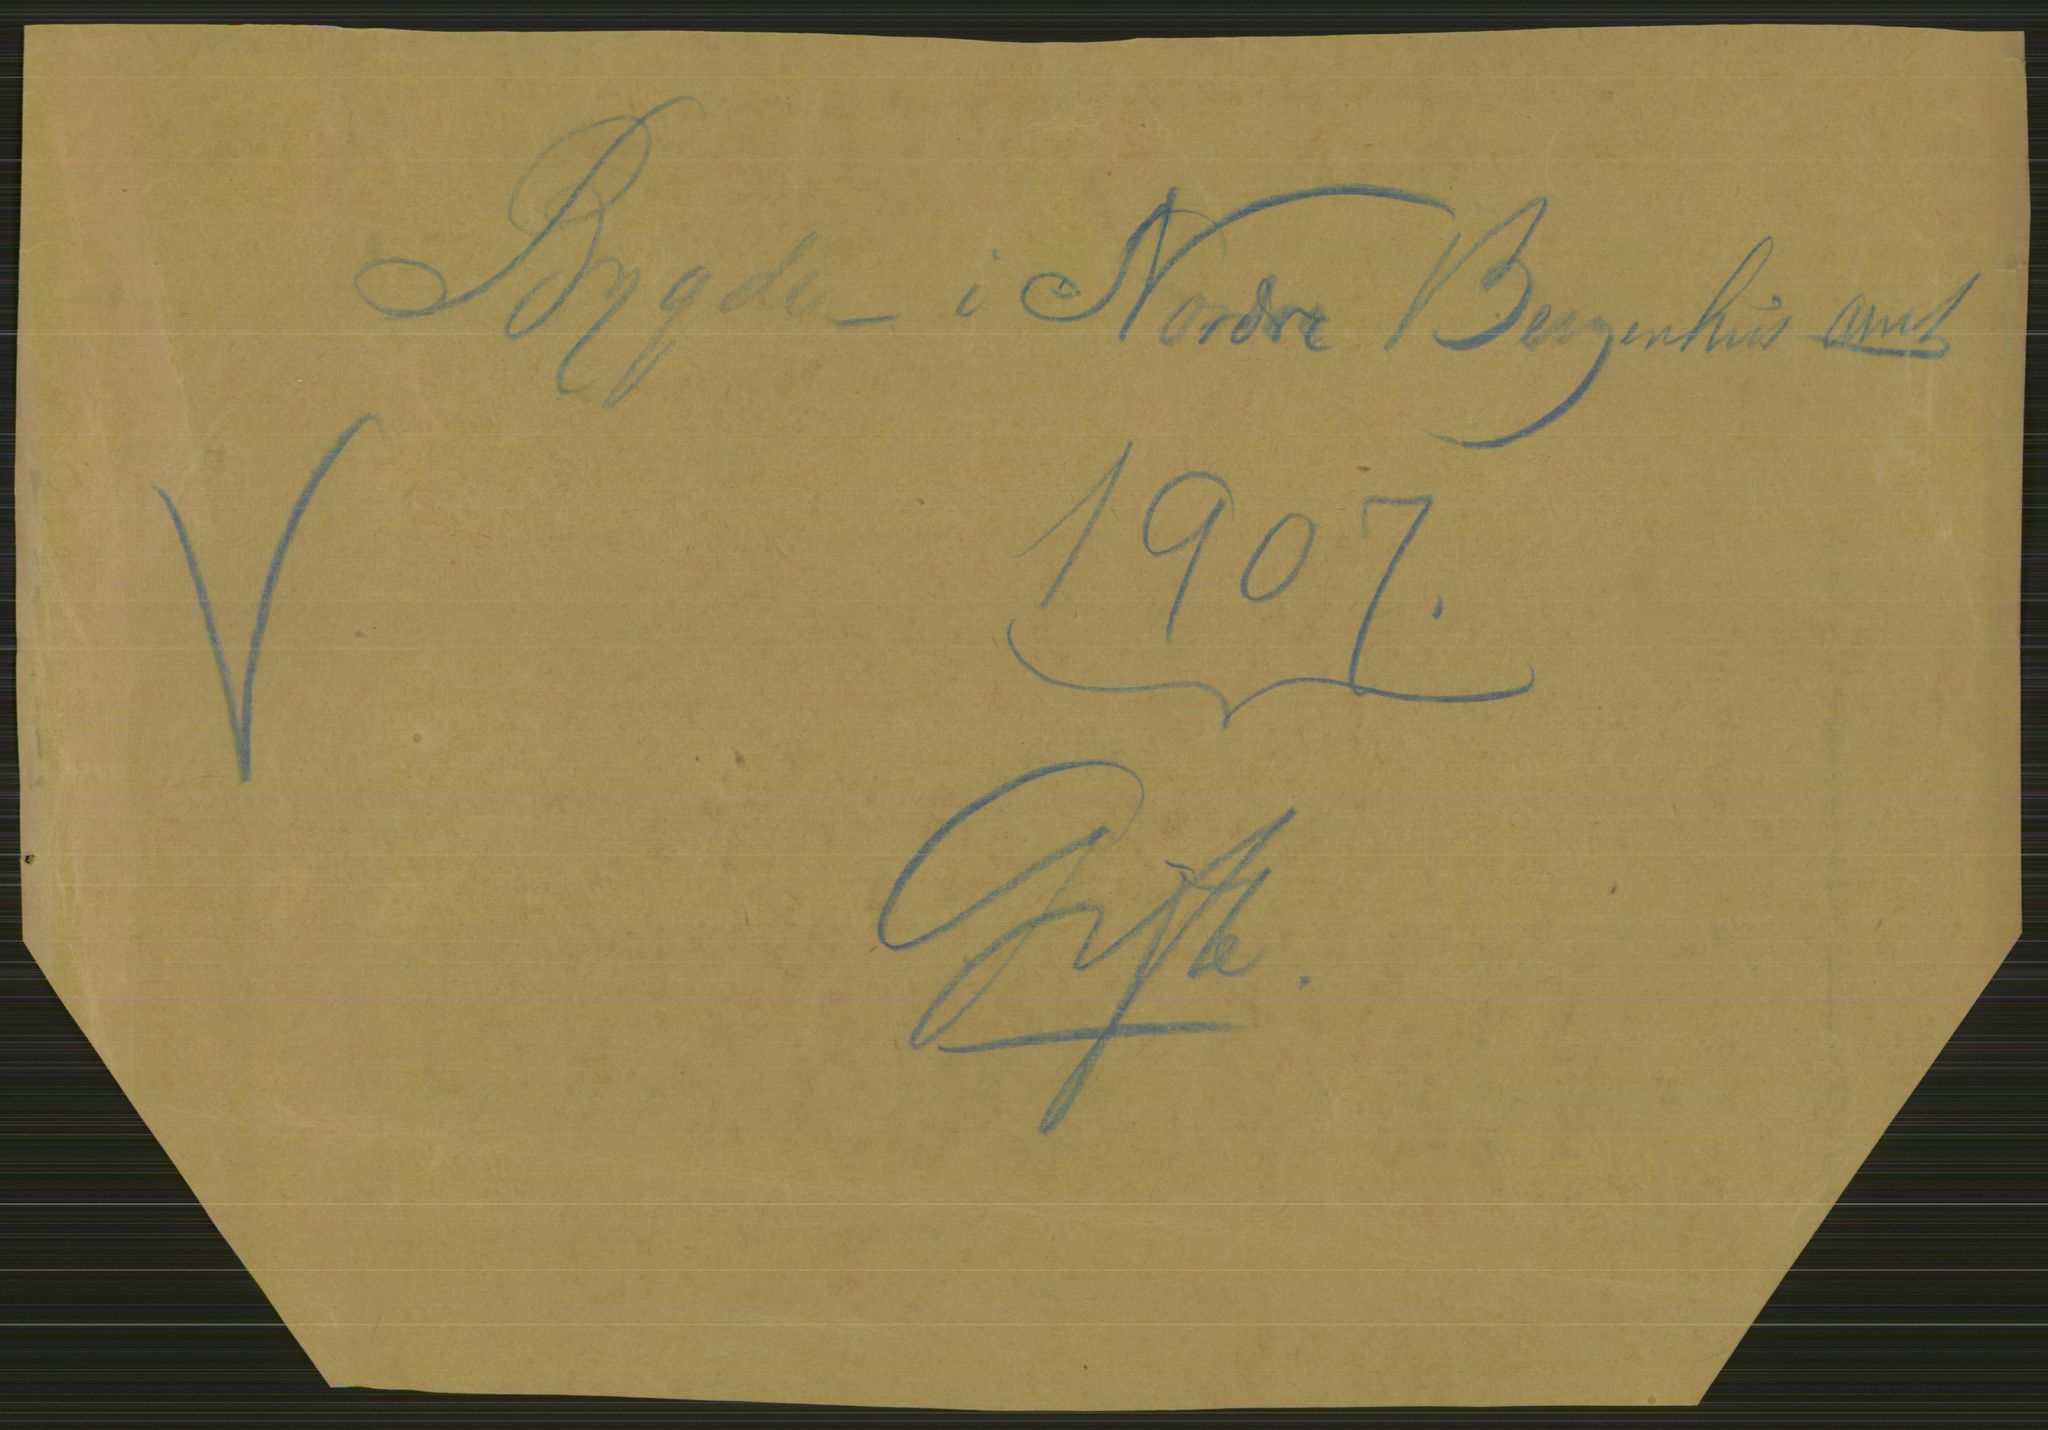 Bygder i Nordre Bergenhus amt
1907.
V
Gifte.